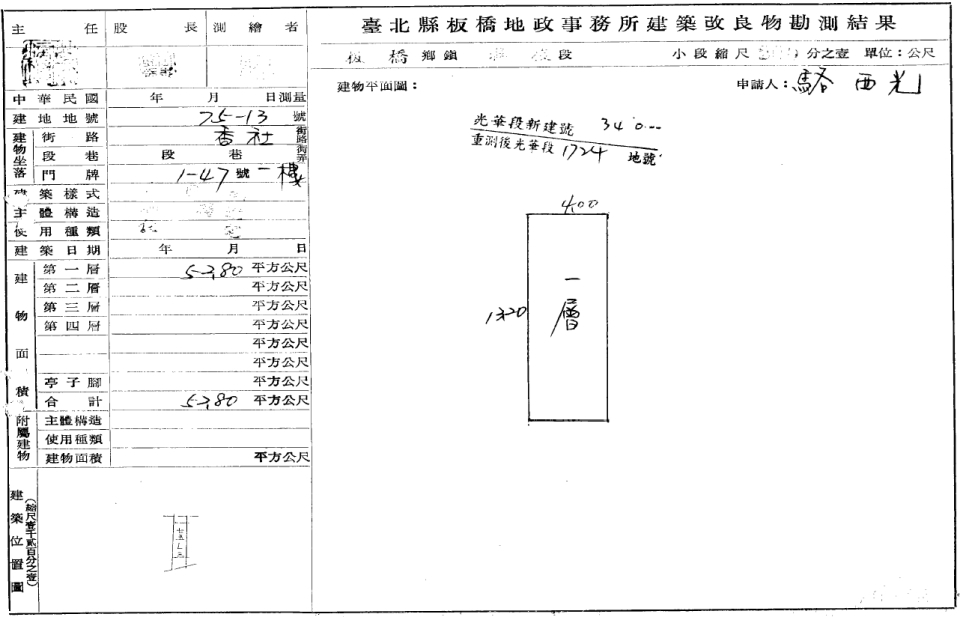 臺北縣板橋地政事務所建築改良物勘測結果
板橋鄉鎮 段 小段縮尺 分之壹 單位：公尺
主任 股長 測繪者
中華民國 年 月 日測量
建地地號 75-13 號
建物坐落 街路 香社 街路
段巷 段 巷 街弄
門牌 1-47號一樓
建築樣式
主體構造
使用種類
建築日期 年 月 日
建物面積
第一層 52.80 平方公尺
第二層 平方公尺
第三層 平方公尺
第四層 平方公尺
平方公尺
平方公尺
亭子腳 平方公尺
合計 52.80 平方公尺
附屬建物 主體構造
使用種類
建物面積 平方公尺
建築位置圖
（縮尺壹千貳百分之壹）
建物平面圖：
申請人：駱西光
光華段新建號 340
重測後光華段 1724 地號
4.00
13.20
一層